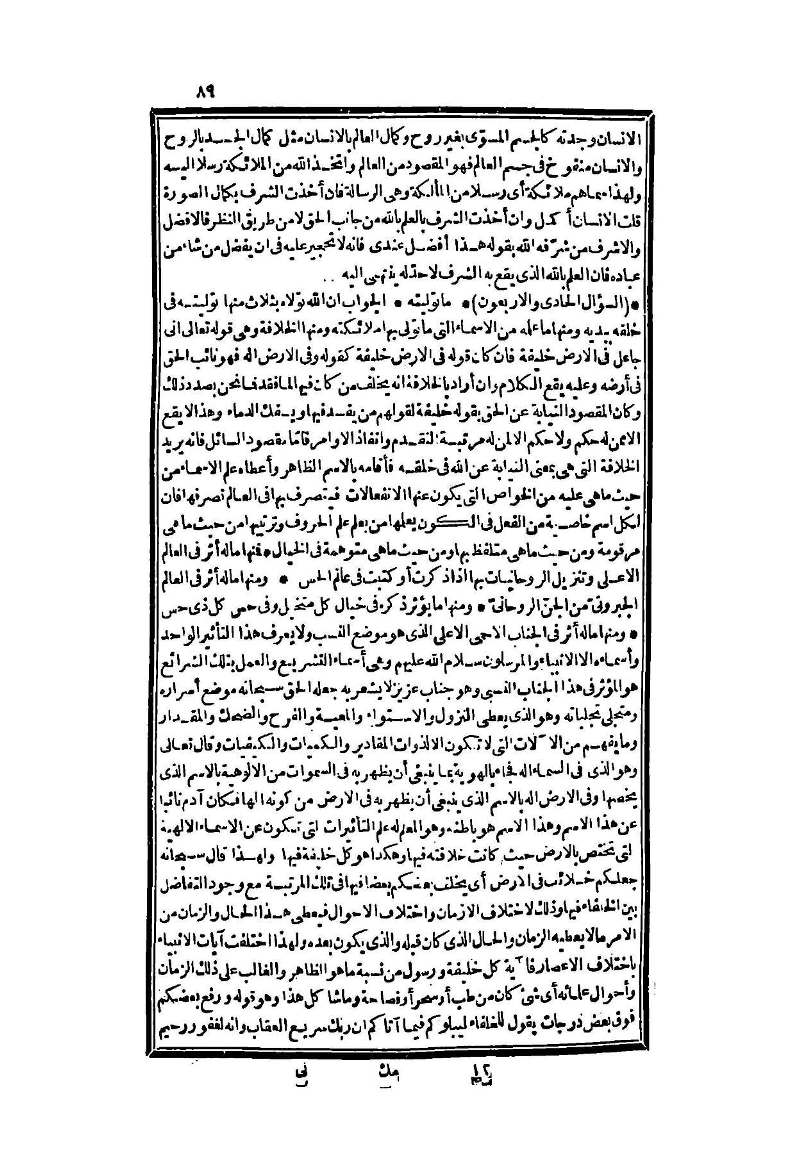 ٨٩
الانسان وجدته كالجسم المسوّى بغير روح وكمال العالم بالانسان مثل كمال الجسد بالروح
والانسان منفوخ فى جسم العالم فهو المقصود من العالم واتخذ الله من الملائكة رسلا اليه
ولهذا سماهم ملائكة أى رسلا من المألكة وهى الرسالة فان أخذت الشرف بكمال الصورة
قلت الانسان أكمل وان أخذت الشرف بالعلم بالله من جانب الحق لا من طريق النظر فالافضل
والاشرف من شرّفه الله بقوله هذا أفضل عندى فانه لا تحجير عليه فى ان يفضل من شاء من
عباده فان العلم بالله الذى يقع به الشرف لا حد له ينتهى اليه ..
*(السؤال الحادى والاربعون)* ما توليته * الجواب ان الله تولاه بثلاث منها توليته فى
خلقه بيديه ومنها ما علمه من الاسماء التى ما تولى بها ملائكته ومنها الخلافة وهى قوله تعالى انى
جاعل فى الارض خليفة فان كان قوله فى الارض خليفة كقوله وفى الارض اله فهو نائب الحق
فى أرضه وعليه يقع الكلام وان أراد بالخلافة انه يخلف من كان فيها لما فقد فما نحن بصدد ذلك
وكان المقصود النيابة عن الحق بقوله خليفة لقولهم من يفسد فيها ويسفك الدماء وهذا لا يقع
الا ممن له حكم ولا حكم الا لمن له مرتبة التقدم وانفاذ الاوامر فاتما مقصود السائل فانه يريد
الخلافة التى هى بمعنى النيابة عن الله فى خلقه فأقامه بالاسم الظاهر وأعطاه علم الاسماء من
حيث ما هى عليه من الخواص التى يكون عنها الانفعالات فيتصرف بها فى العالم تصرفها فان
لكل اسم خاصية من الفعل فى الكون يعلمها من يعلم علم الحروف وترتيبها من حيث ما هى
مرقومة ومن حيث ما هى متلفظ بها ومن حيث ما هى متوهمة فى الخيال * فمنها ما له أثر فى العالم
الاعلى وتنزيل الروحانيات بها اذا ذكرت أو كتبت فى عالم الحس * ومنها ما له أثر فى العالم
الجبروتى من الجن الروحانى * ومنها ما يؤثر ذكره فى خيال كل متخيل وفى حس كل ذى حس
* ومنها ما له أثر فى الجناب الاحمى الاعلى الذى هو موضع النسب ولا يعرف هذا التأثير الواحد
وأسماءه الا الانبياء والمرسلون سلام الله عليهم وهى أسماء التشريع والعمل بتلك الشرائع
هو المؤثر فى هذا الجناب النسبى وهو جناب عزيز لا يشعر به جعله الحق سبحانه موضع أسراره
ومتجلى تجلياته وهو الذى يعطى النزول والاستواء والمعية والفرح والضحك والمقدار
وما يفهم من الآلات التى لا تكون الا لذوات المقادير والكميات والكيفيات وقال تعالى
وهو الذى فى السماء اله فجاء بالهوية بما ينبغى أن يظهر به فى السموات من الالوهية بالاسم الذى
يخصها وفى الارض اله بالاسم الذى ينبغى أن يظهر به فى الارض من كونه الها فكان آدم نائبا
عن هذا الاسم وهذا الاسم هو باطنه وهو المعلم له علم التأثيرات التى تكون عن الاسماء الالهية
التى تختص بالارض حيث كانت خلافته فيها وهكذا هو كل خليفة فيها ولهذا قال سبحانه
جعلكم خلائف فى الارض أى يخلف بعضكم بعضا فيها فى تلك المرتبة مع وجود التفاضل
بين الخلفاء فيها وذلك لاختلاف الازمان واختلاف الاحوال فيعطى هذا الحال والزمان من
الامر ما لا يعطيه الزمان والحال الذى كان قبله والذى يكون بعده ولهذا اختلفت آيات الانبياء
باختلاف الاعصار فآية كل خليفة ورسول من نسبة ما هو الظاهر والغالب على ذلك الزمان
وأحوال علمائه أى شئ كان من طب أو سحر أو فصاحة وما شا كل هذا وهو قوله ورفع بعضكم
فوق بعض درجات يقول للخلفاء ليبلوكم فيما آتاكم ان ربك سريع العقاب وانه لغفور رحيم
١٢ مك نى